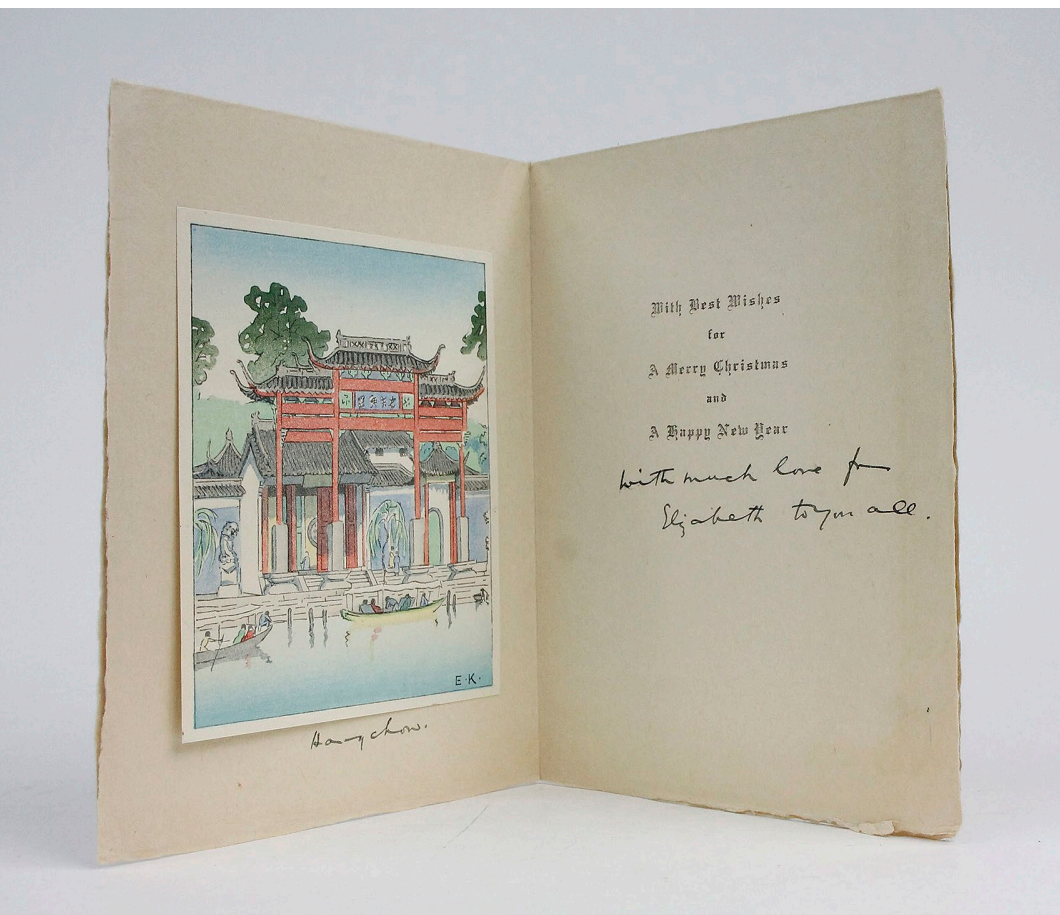 E·K·
Hangchow.
With Best Wishes
for
A Merry Christmas
and
A Happy New Year
with much love from
Elizabeth to you all.